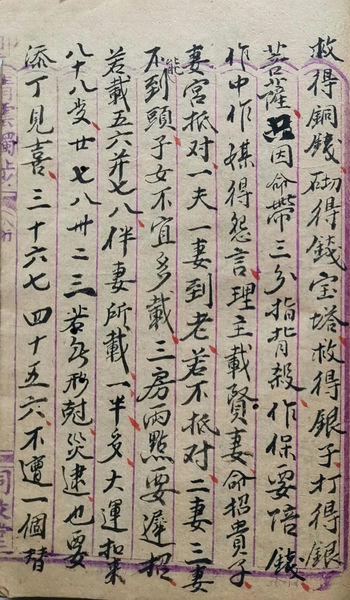 救得銅錢砌得錢宝塔救得銀子打得銀
菩薩只因命帶三分指背殺作保要陪錢
作中作媒得怨言理主載賢妻命招貴子
妻宮抵对一夫一妻到老若不抵对二妻三妻
不能到頭子女不宜多載三房兩點要遲招
若載五六并七八伴妻所載一半多大運扣來
八十八歲廿七八卅二三若無刑尅災逮也要
添丁見喜三十六七四十五六不遭一個替